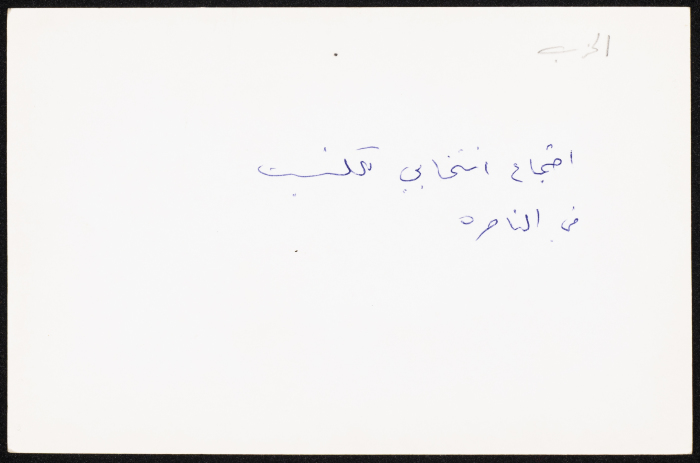 الحزب
اجتماع انتخابي للكنيست
في الناصره